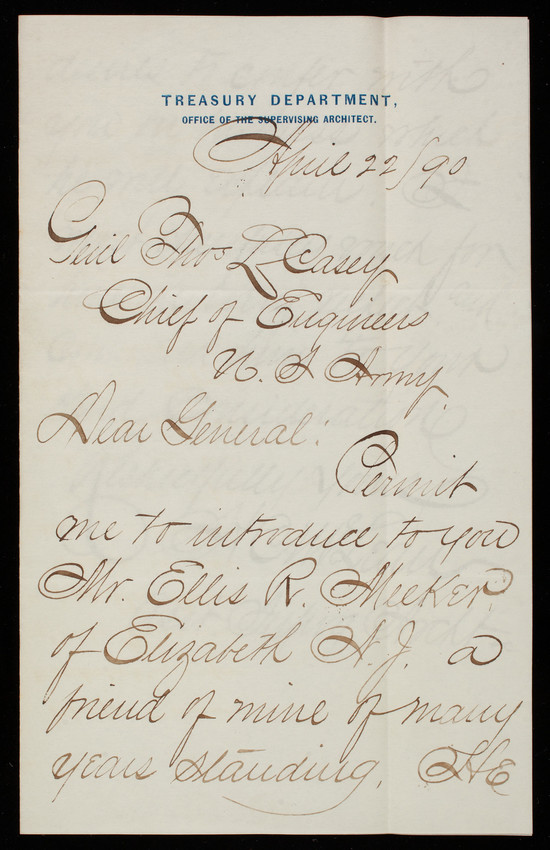 TREASURY DEPARTMENT,
OFFICE OF THE SUPERVISING ARCHITECT.
April 22/90
Genl Thos L Casey
Chief of Engineers
U. S Army.
Dear General:
Permit
me to introduce to you
Mr. Ellis R. Meeker
of Elizabeth N. J. a
friend of mine of many
years standing. He